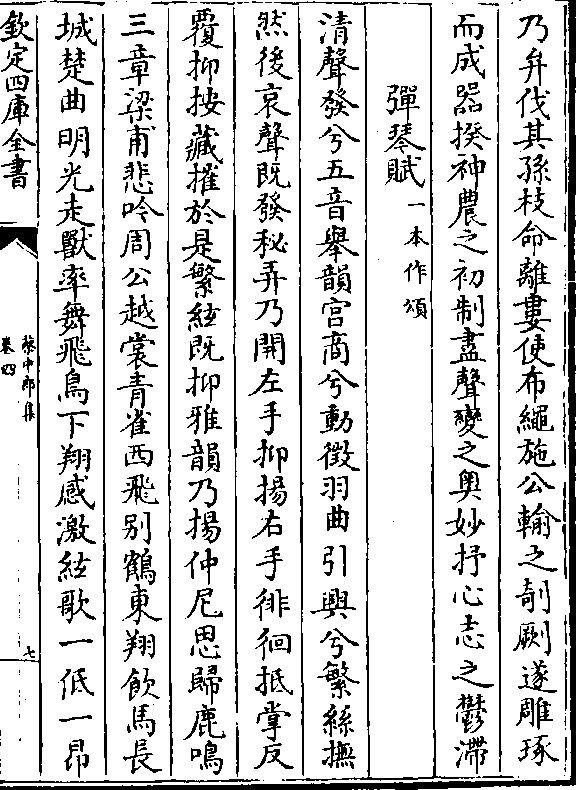 乃弁伐其孫枝命離婁使布繩施公輸之剞劂遂雕琢
而成器揆神農之初制盡聲變之奥妙抒心志之鬱滯
彈琴賦一本作頌
清聲發兮五音舉韻宫商兮動徵羽曲引興兮繁絲撫
然後哀聲既發秘弄乃開左手抑揚右手徘徊抵掌反
覆抑按藏摧於是繁絃既抑雅韻乃揚仲尼思歸鹿鳴
三章梁甫悲吟周公越裳青雀西飛别鶴東翔飲馬長
城楚曲明光走獸率舞飛鳥下翔感激絃歌一低一昂
欽定四庫全書
蔡中郎集
卷四
七